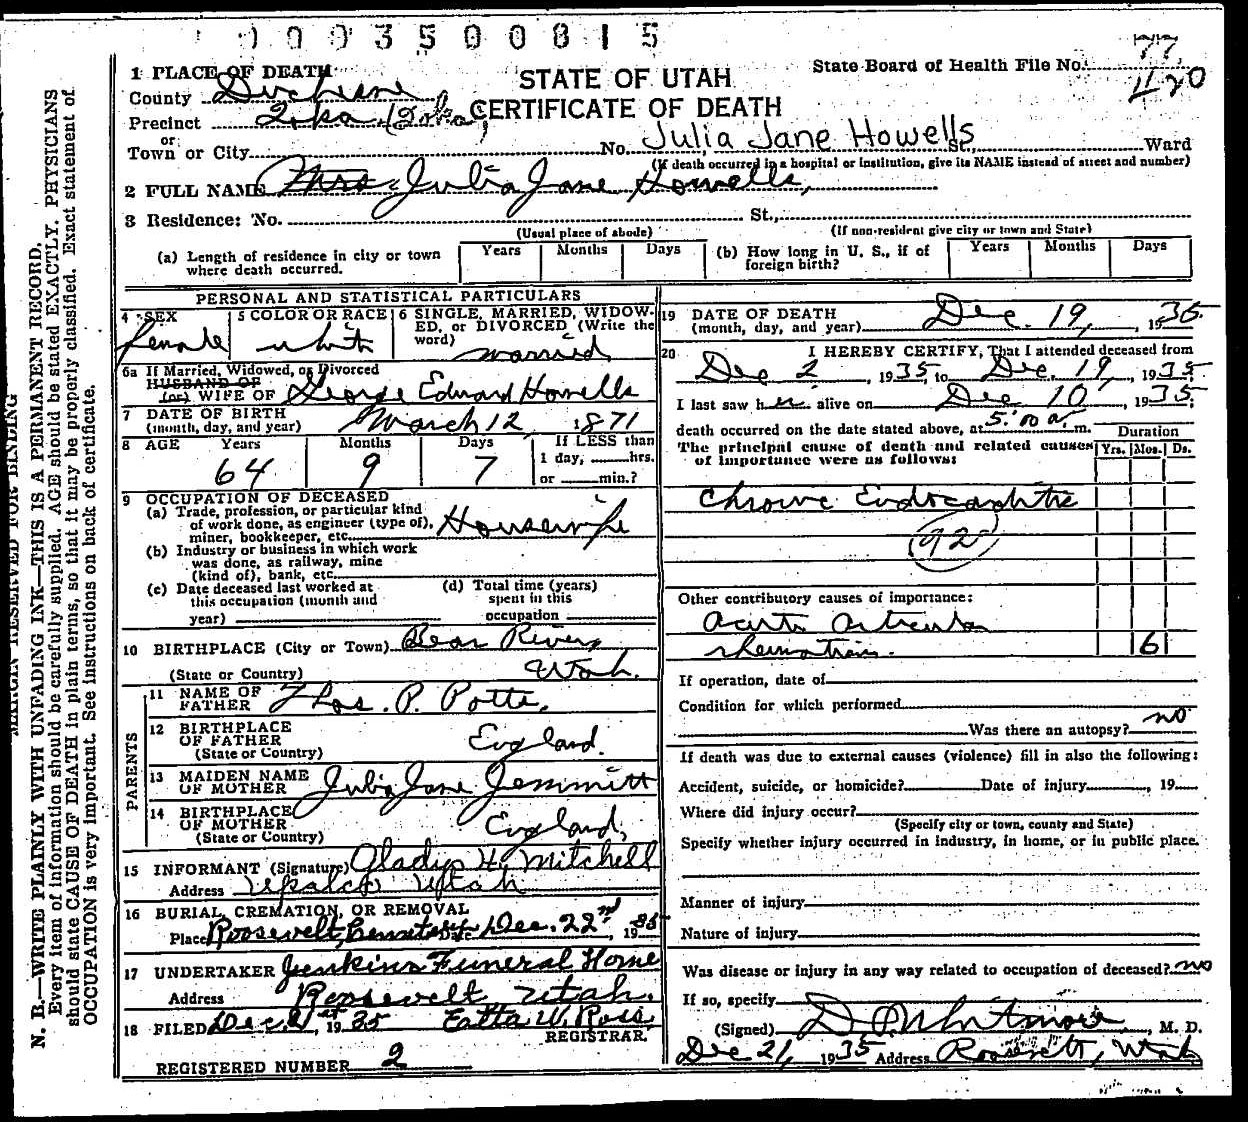 0003500815
1 PLACE OF DEATH
STATE OF UTAH
CERTIFICATE OF DEATH
State Board of Health File No. 77
420
County Duchesne
Precinct Ioka (Ioka)
or
Town or City No. Julia Jane Howells St., Ward
(If death occurred in a hospital or institution, give its NAME instead of street and number)
2 FULL NAME Mrs Julia Jane Howells,
3 Residence: No. St.,
(Usual place of abode) (If non-resident give city or town and State)
(a) Length of residence in city or town where death occurred. Years Months Days
(b) How long in U. S., if of foreign birth? Years Months Days
PERSONAL AND STATISTICAL PARTICULARS
4 SEX female
5 COLOR OR RACE white
6 SINGLE, MARRIED, WIDOWED, or DIVORCED (Write the word) married
6a If Married, Widowed, or Divorced
HUSBAND OF
(or) WIFE OF George Edward Howells
7 DATE OF BIRTH
(month, day, and year) March 12, 1871
8 AGE Years 64 Months 9 Days 7
If LESS than
1 day, hrs.
or min.?
9 OCCUPATION OF DECEASED
(a) Trade, profession, or particular kind
of work done, as engineer (type of),
miner, bookkeeper, etc. Housewife
(b) Industry or business in which work
was done, as railway, mine
(kind of), bank, etc.
(c) Date deceased last worked at
this occupation (month and
year)
(d) Total time (years)
spent in this
occupation
10 BIRTHPLACE (City or Town) Bear River,
(State or Country) Utah.
PARENTS
11 NAME OF
FATHER Thos. P. Potts,
12 BIRTHPLACE
OF FATHER
(State or Country) England.
13 MAIDEN NAME
OF MOTHER Julia Jane Jemmitt
14 BIRTHPLACE
OF MOTHER
(State or Country) England,
15 INFORMANT (Signature) Gladys H. Mitchell
Address Upalco Utah
16 BURIAL, CREMATION, OR REMOVAL
Place Roosevelt, Cemetery Date Dec. 22nd, 1935
17 UNDERTAKER Jenkins Funeral Home
Address Roosevelt, Utah.
18 FILED Dec 21st, 1935 Etta W. Ross.
REGISTRAR.
REGISTERED NUMBER 2
19 DATE OF DEATH
(month, day, and year) Dec. 19, 1935
20 I HEREBY CERTIFY, That I attended deceased from
Dec 2, 1935, to Dec. 19, 1935.
I last saw her alive on Dec 10, 1935
death occurred on the date stated above, at 5:00 a. m.
The principal cause of death and related causes
of importance were as follows:
Duration
Yrs. Mos. Ds.
Chronic Endocarditis
92
Other contributory causes of importance:
Acute Articular
rheumatism. 6
If operation, date of
Condition for which performed
Was there an autopsy? no
If death was due to external causes (violence) fill in also the following:
Accident, suicide, or homicide? Date of injury , 19
Where did injury occur?
(Specify city or town, county and State)
Specify whether injury occurred in industry, in home, or in public place.
Manner of injury
Nature of injury
Was disease or injury in any way related to occupation of deceased? no
If so, specify
(Signed) D O Whitmore, M. D.
Dec 21, 1935 Address Roosevelt, Utah
MARGIN RESERVED FOR BINDING
N. B.—WRITE PLAINLY WITH UNFADING INK—THIS IS A PERMANENT RECORD.
Every item of information should be carefully supplied. AGE should be stated EXACTLY. PHYSICIANS
should state CAUSE OF DEATH in plain terms, so that it may be properly classified. Exact statement of
OCCUPATION is very important. See instructions on back of certificate.